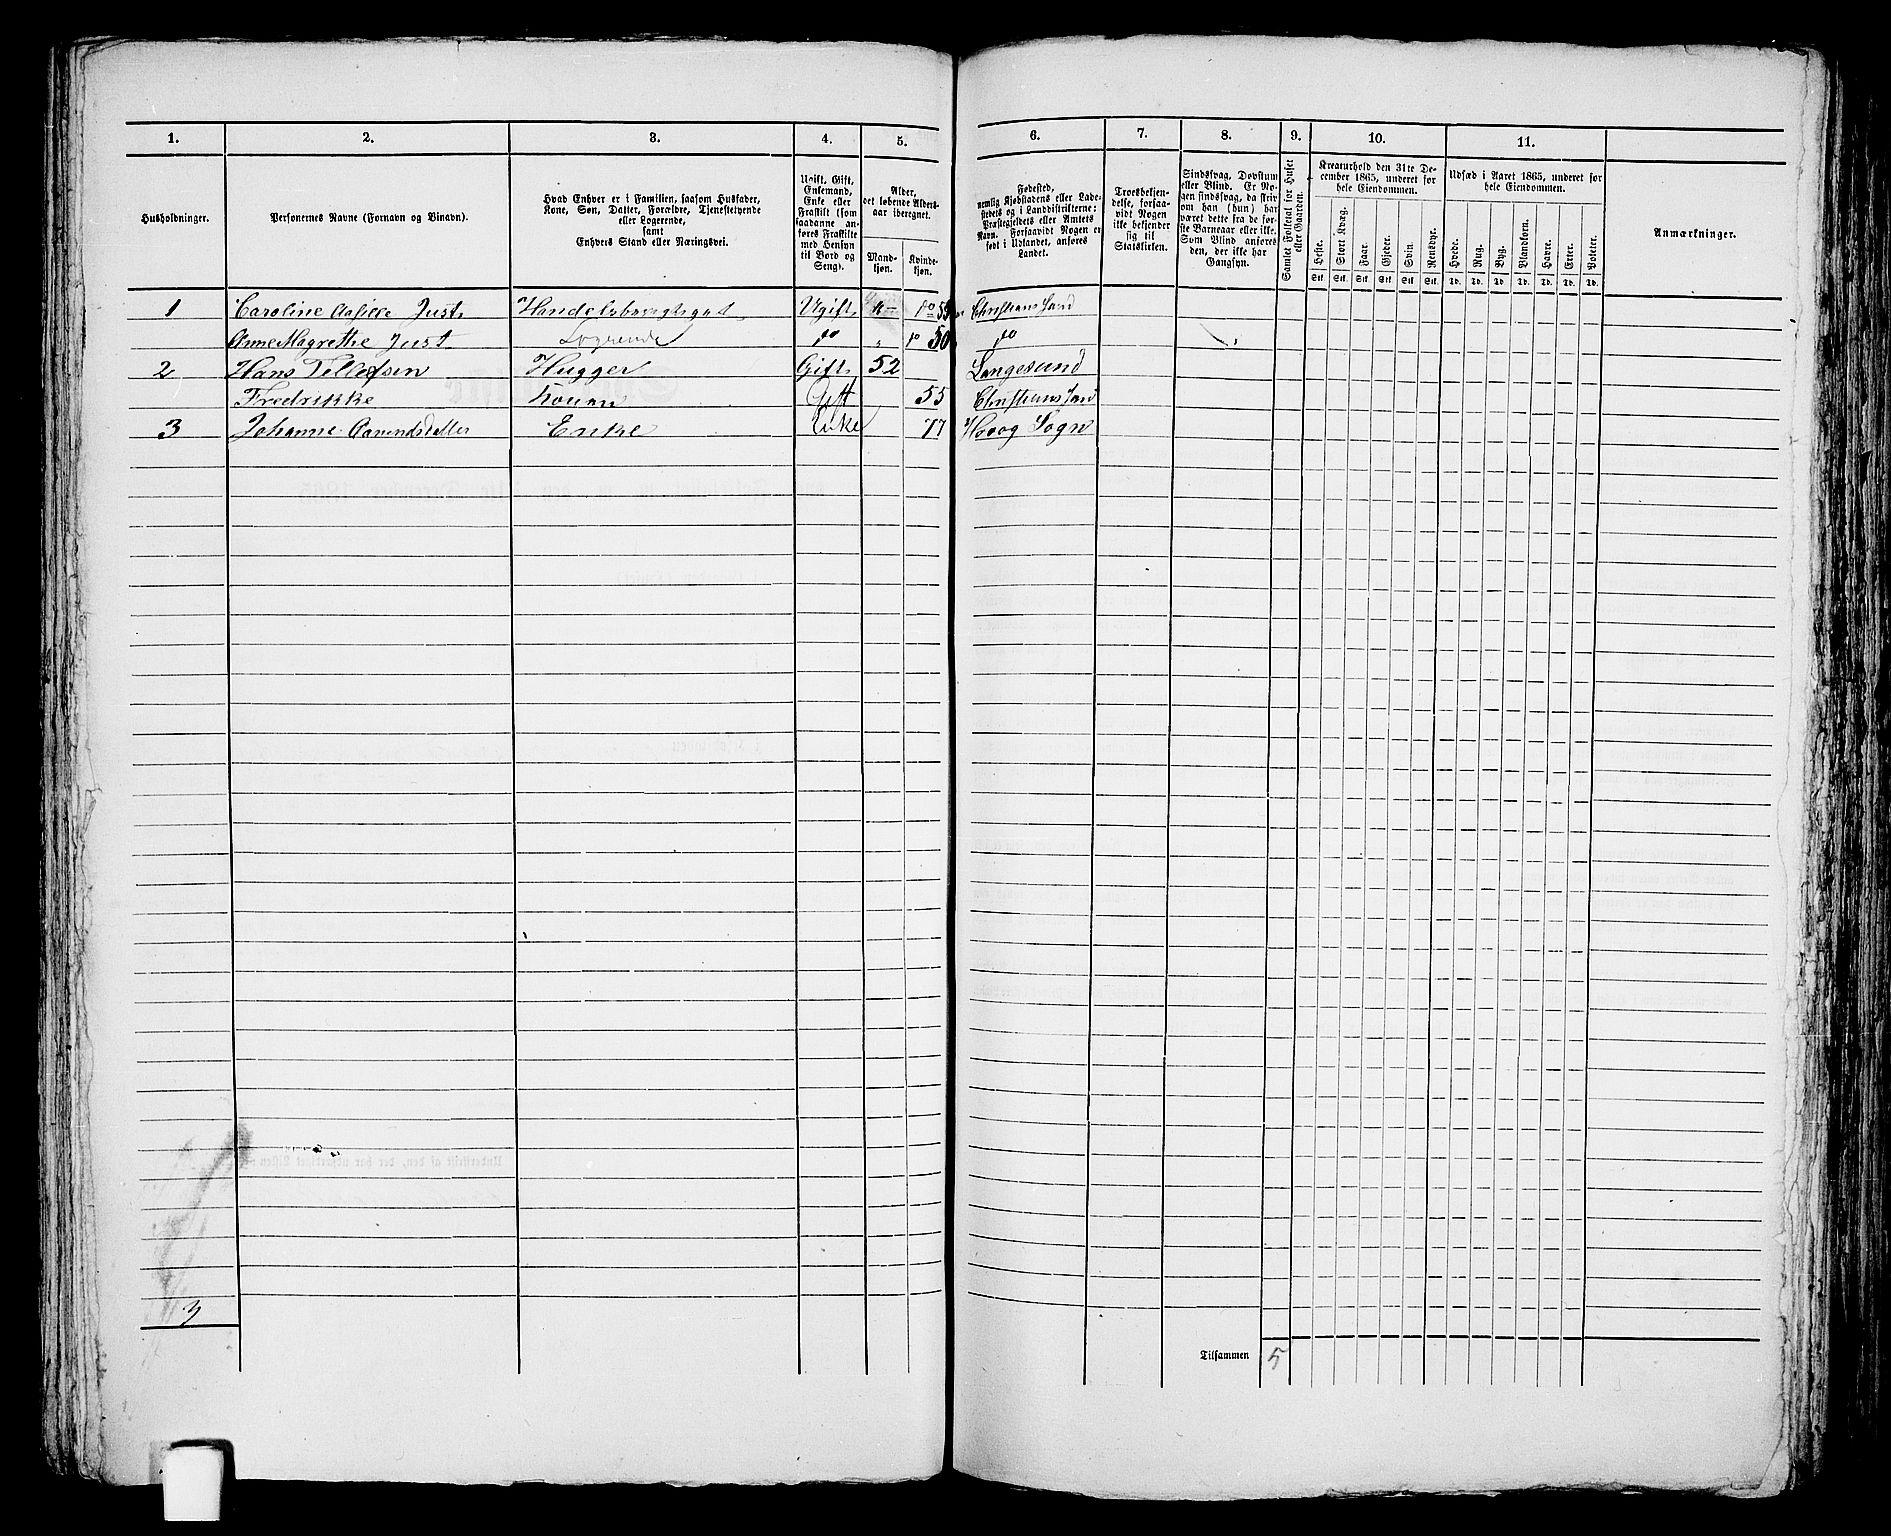 1. 2. 3. 4. 5. 6. 7. 8. 9. 10. 11.
Husholdninger.
Personernes Navne (Fornavn og Binavn).
Hvad Enhver er i Familien, saasom Husfader,
Kone, Søn, Datter, Forældre, Tjenestetyende
eller Logerende,
samt
Enhvers Stand eller Næringsvei.
Ugift, Gift,
Enkemand,
Enke eller
Fraskilt (som
saadanne anføres Fraskilte
med Hensyn
til Bord og
Seng).
Alder,
det løbende Aldersaar iberegnet.
Mandkjøn.
Kvindekjøn.
Fødested,
nemlig Kjøbstadens eller Ladestedets og i Landdistrikterne:
Præstegjeldets eller Amtets
Navn. Forsaavidt Nogen er
født i Udlandet, anføres
Landet.
Troesbekjendelse, forsaavidt Nogen
ikke bekjender
sig til
Statskirken.
Sindssvag, Døvstum
eller Blind. Er Nogen sindssvag, da skrives
om han (hun) har
været dette fra de første Barneaar eller ikke.
Som Blind anføres
den, der ikke har
Gangsyn.
Samlet Folketal for Huset
eller Gaarden.
Kreaturhold den 31te December 1865, underet for
hele Eiendommen.
Heste. Stort Kvæg. Faar. Gjeder. Svin. Rensdyr.
Stk. Stk. Stk. Stk. Stk. Stk.
Udsæd i Aaret 1865, underet for
hele Eiendommen.
Hvede. Rug. Byg. Blandkorn. Havre. Erter. Poteter.
Td. Td. Td. Td. Td. Td. Td.
Anmærkninger.
1 Caroline Just Ugift do Christianssand
Anne Magrethe Just Logerende do do 50 do
2 Hans Tellefsen Hugger Gift 52 Langesund
Fredrikke Konen Gift 55 Christianssand
3 Johanne Enke Enke 77 Høvog Sogn
3
Tilsammen 5